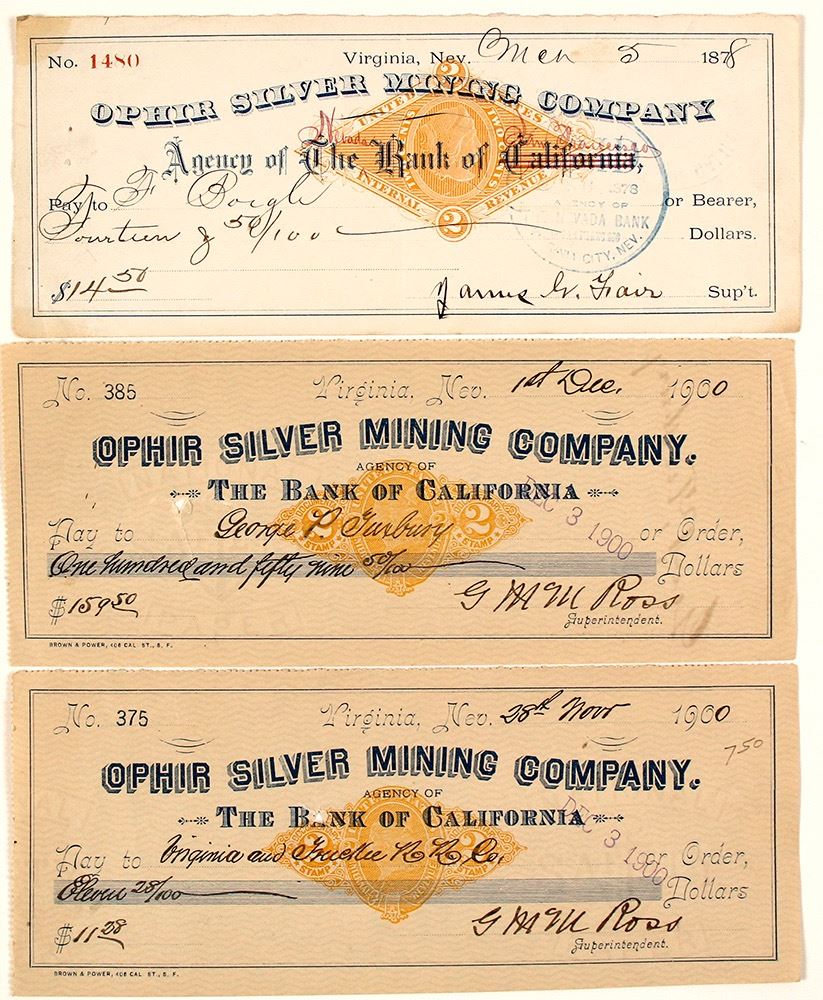 No. 1480 Virginia, Nev. Mch 5 1878
OPHIR SILVER MINING COMPANY
UNITED STATES
Nevada San Francisco
Agency of The Bank of California,
INTERNAL REVENUE
2
2
1878
AGENCY OF
NEVADA BANK
CITY, NEV.
Pay to F or Bearer,
Fourteen & 50/100 Dollars.
$14 50 James G. Fair Sup't.
No. 385 Virginia, Nev. 1st Dec. 1900
OPHIR SILVER MINING COMPANY.
AGENCY OF
THE BANK OF CALIFORNIA
DEC 3 1900
2 2
STAMP STAMP
Pay to George P. Thurbury or Order,
One hundred and fifty nine 50/100 Dollars
$159 50 G McM Ross
Superintendent.
BROWN & POWER, 406 CAL. ST., S. F.
No. 375 Virginia, Nev. 28th Novr 1900
7 50
OPHIR SILVER MINING COMPANY.
AGENCY OF
THE BANK OF CALIFORNIA
DEC 3 1900
2 2
STAMP STAMP
Pay to Virginia and Truckee R R Co. or Order,
Eleven 28/100 Dollars
$11 28 G McM Ross
Superintendent.
BROWN & POWER, 406 CAL. ST., S. F.